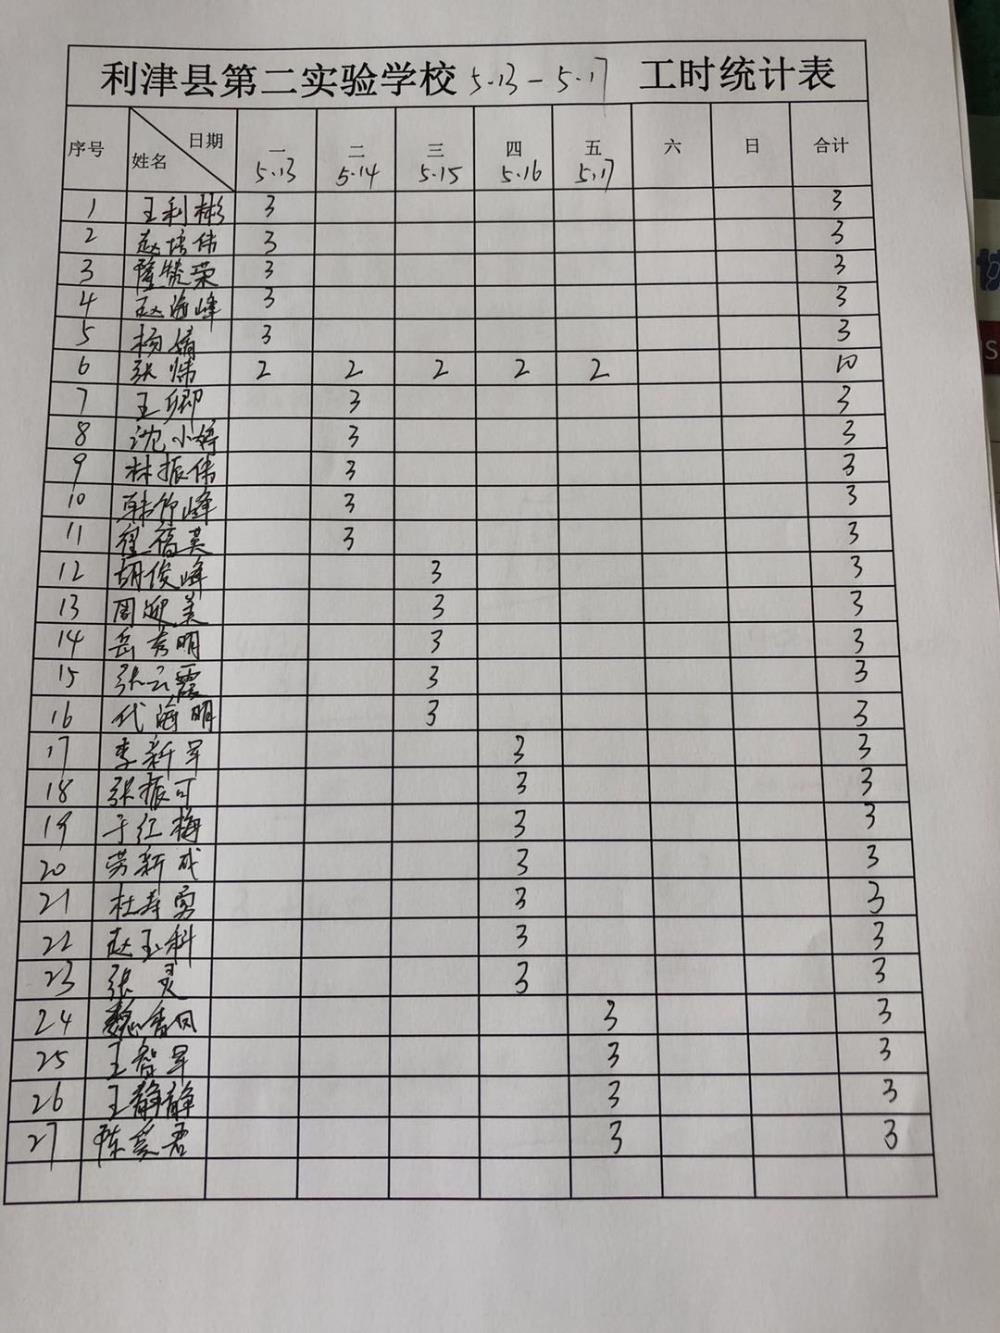 利津县第二实验学校 5.13-5.17 工时统计表
序号 姓名 日期 一 5.13 二 5.14 三 5.15 四 5.16 五 5.17 六 日 合计
1 王利彬 3 3
2 赵培伟 3 3
3 隆赞荣 3 3
4 赵海峰 3 3
5 杨娟 3 3
6 张炜 2 2 2 2 2 10
7 王卿 3 3
8 沈小婷 3 3
9 林振伟 3 3
10 韩仰峰 3 3
11 崔福美 3 3
12 胡俊峰 3 3
13 周迎美 3 3
14 岳秀明 3 3
15 张云霞 3 3
16 代海明 3 3
17 李新军 3 3
18 张振可 3 3
19 于红梅 3 3
20 劳新成 3 3
21 杜寿勇 3 3
22 赵玉科 3 3
23 张灵 3 3
24 魏香同 3 3
25 王智军 3 3
26 王静静 3 3
27 陈爱君 3 3